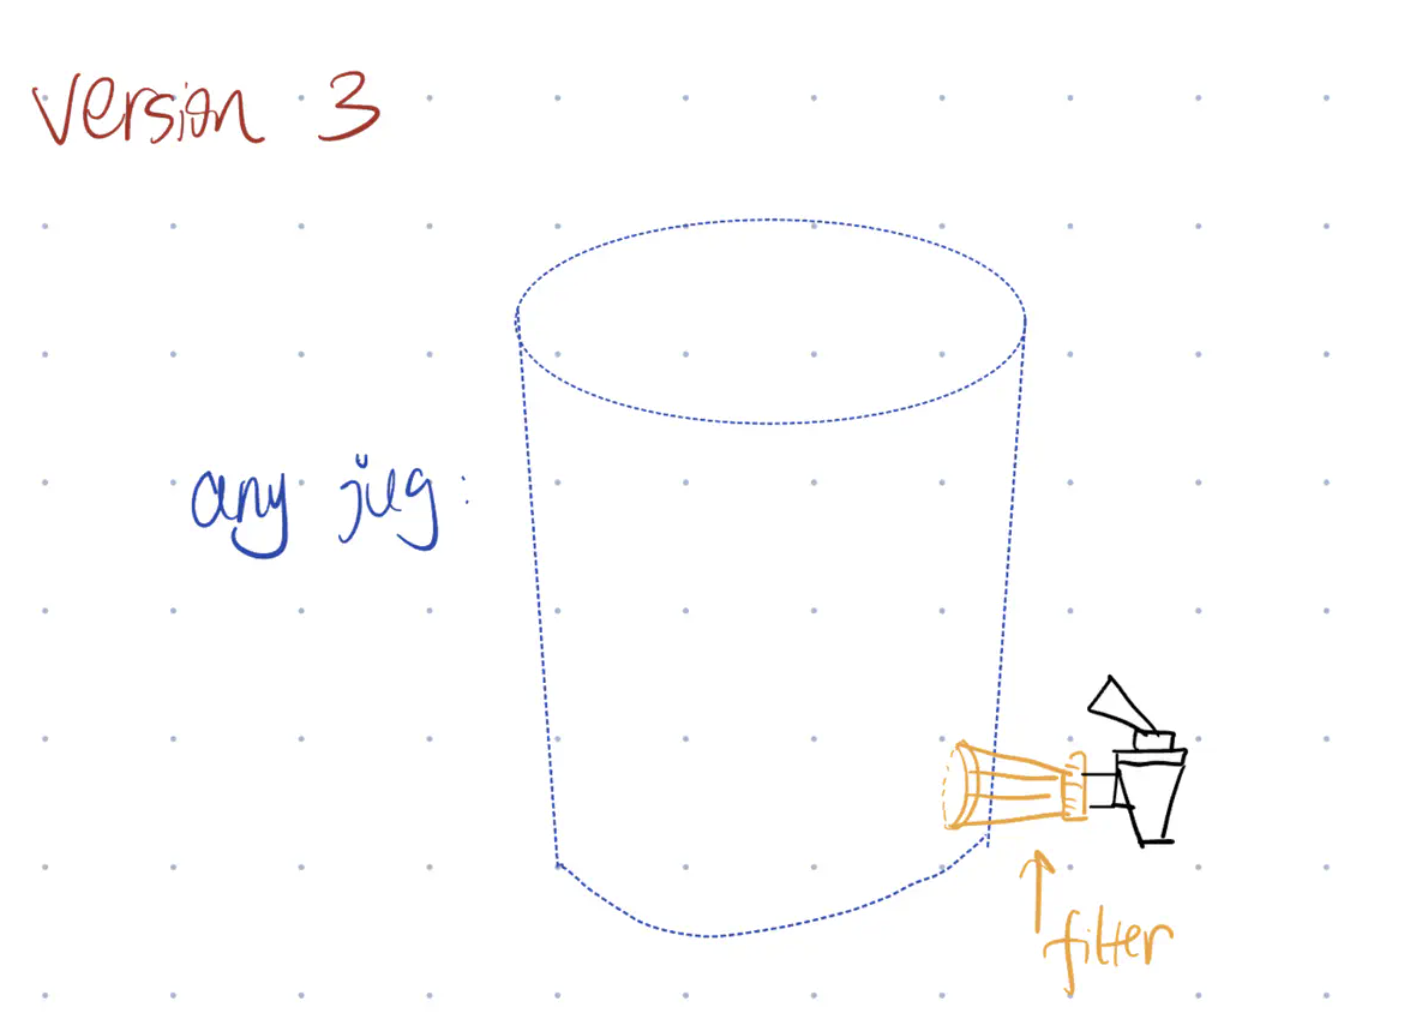 Version 3
any jug:
filter